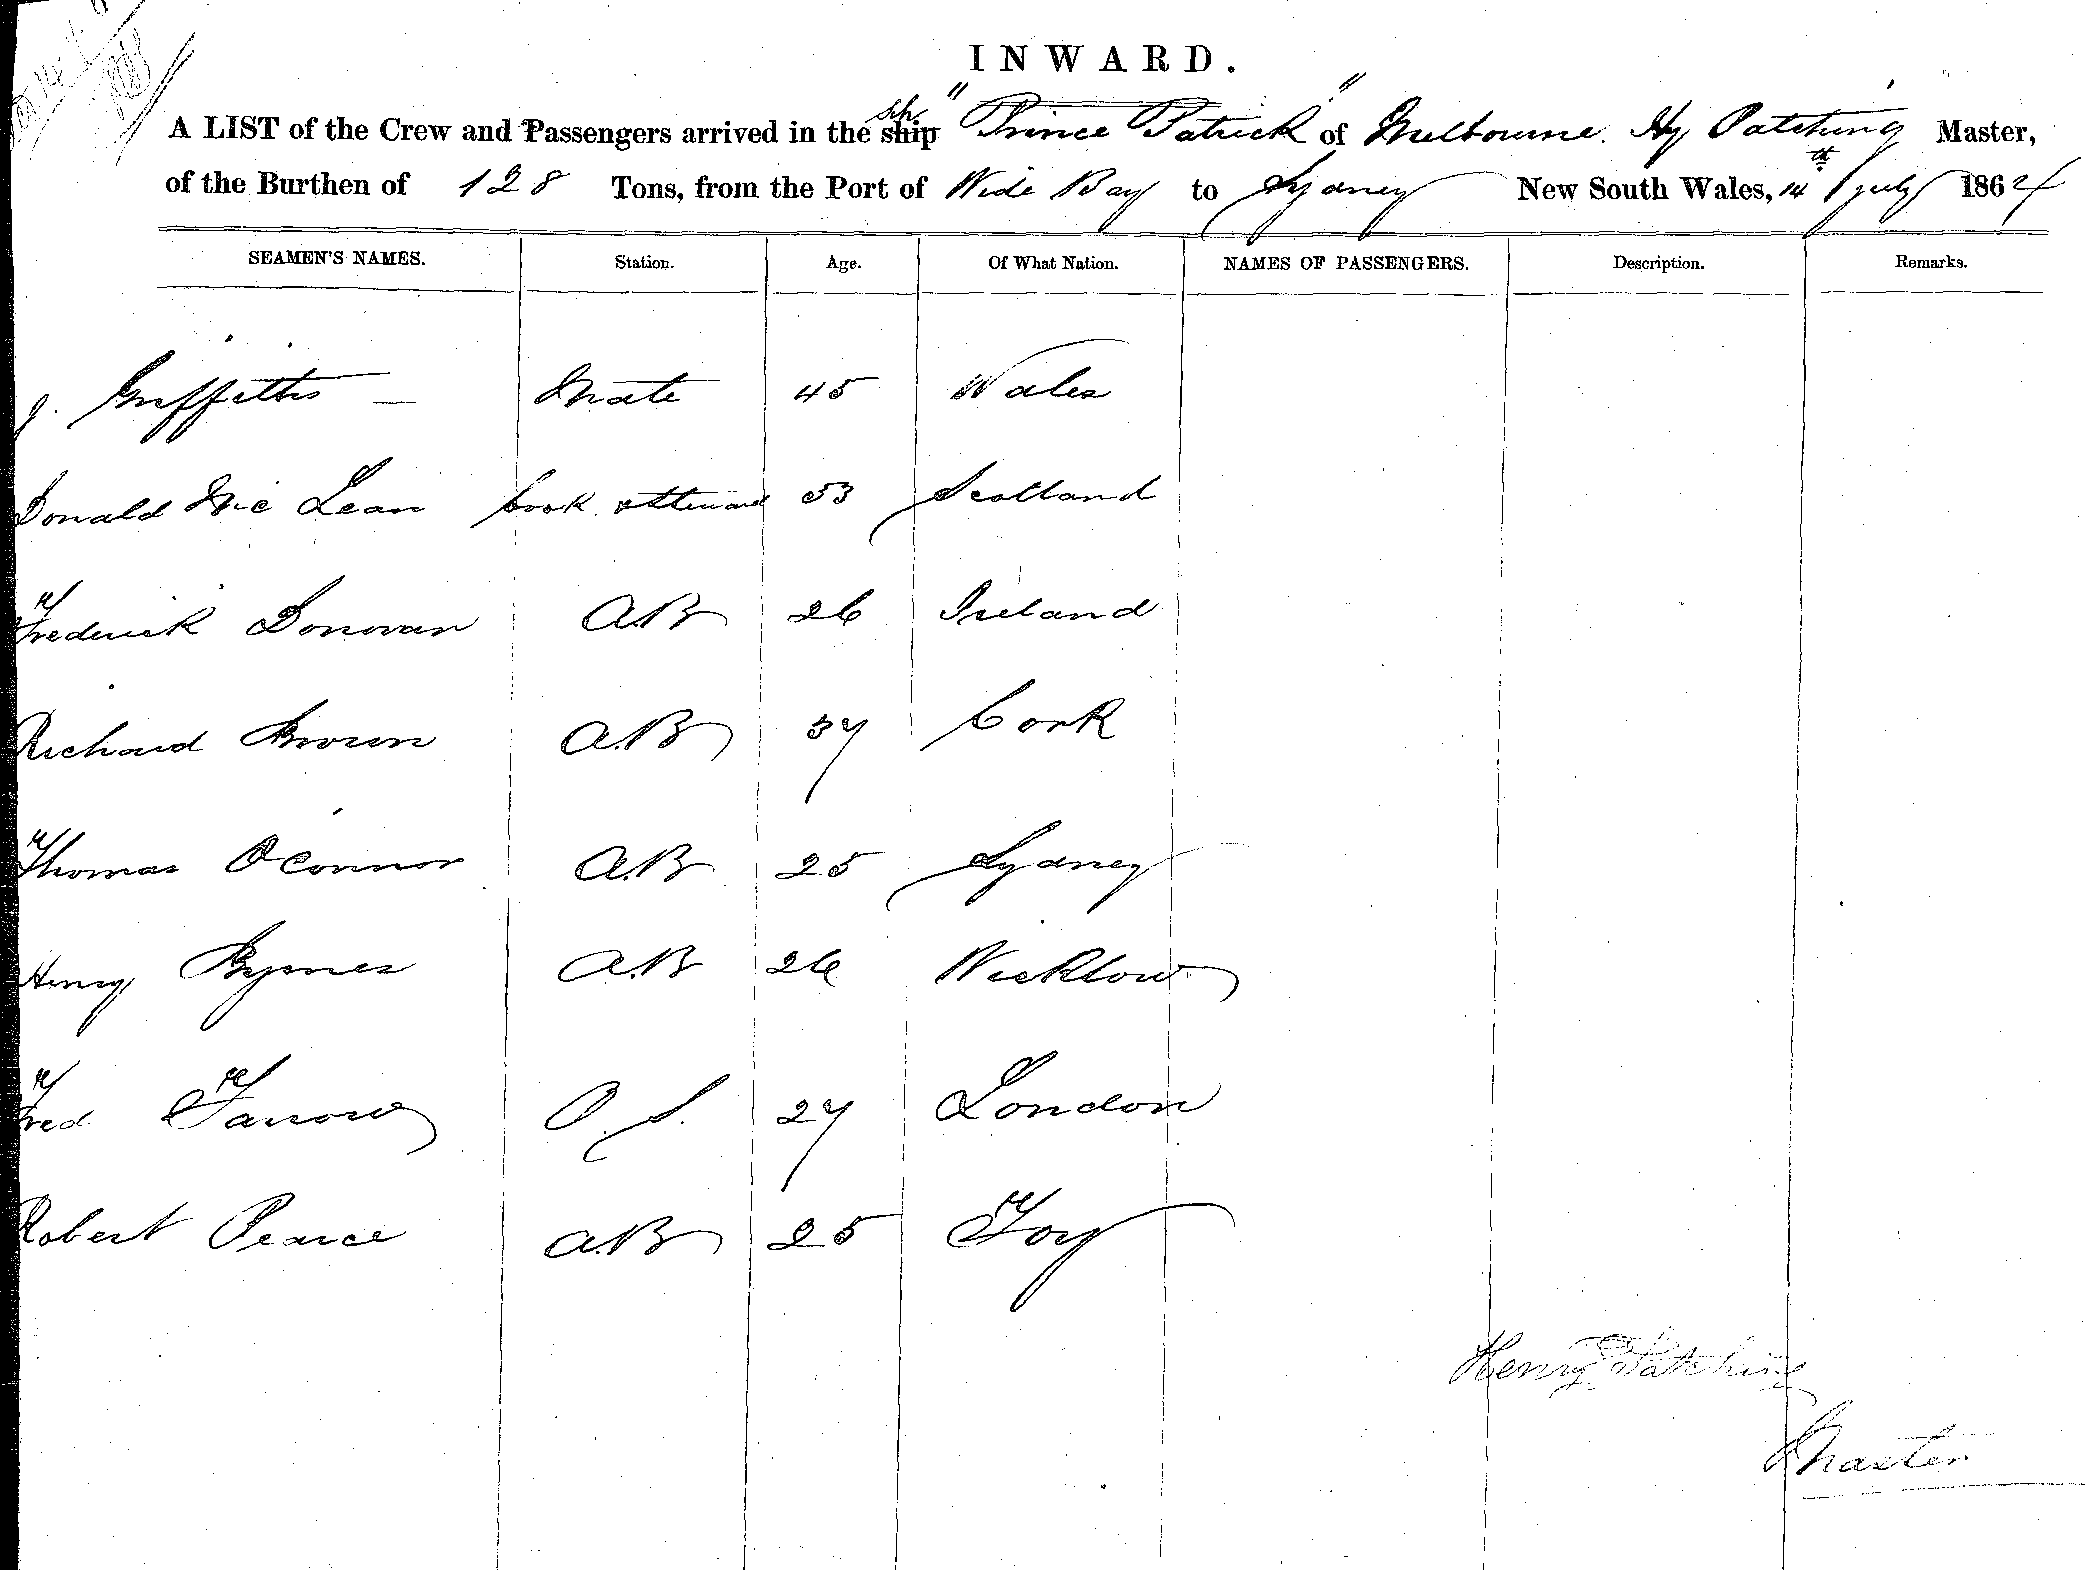 INWARD.
A LIST of the Crew and Passengers arrived in the ship Sch. "Prince Patrick" of Melbourne. Hy Patching Master,
of the Burthen of 128 Tons, from the Port of Wide Bay to Sydney New South Wales, 14th July 1864
SEAMEN'S NAMES. Station. Age. Of What Nation. NAMES OF PASSENGERS. Description. Remarks.
J. Griffiths — Mate 45 Wales
Donald McLean Cook & Steward 53 Scotland
Frederick Donovan A.B 26 Ireland
Richard Brown A.B 37 Cork
Thomas O'Connor A.B 25 Sydney
Henry Byrnes A.B 26 Wicklow
Fred Farrow O.S. 27 London
Robert Pearce A.B 25 Foy
Henry Patching
Master